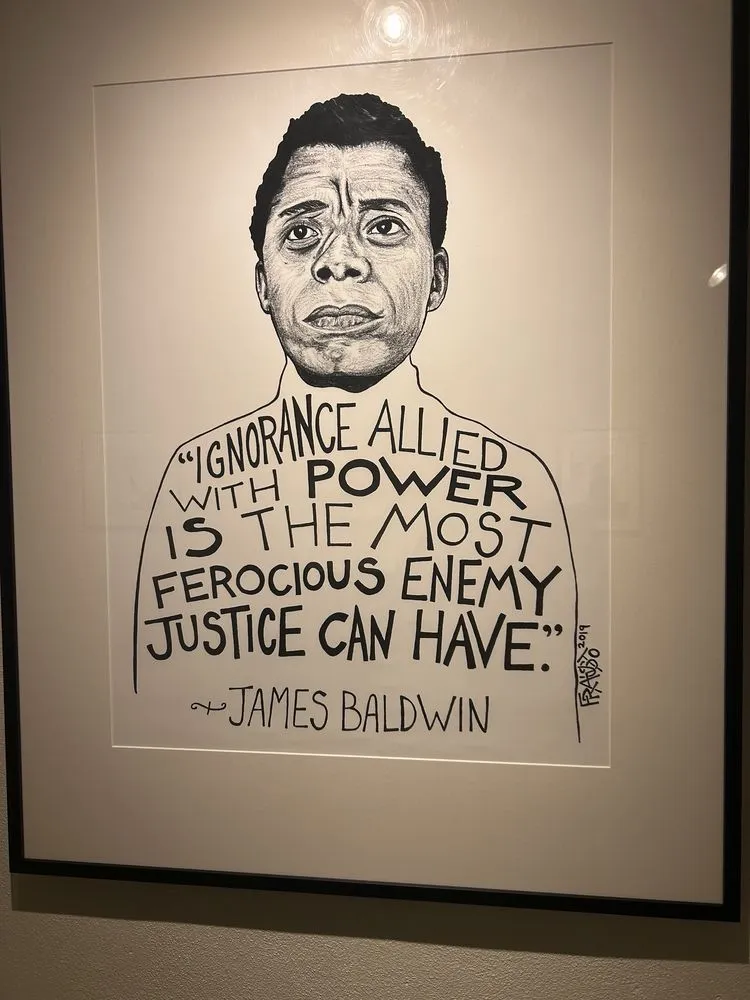 “IGNORANCE ALLIED
WITH POWER
IS THE MOST
FEROCIOUS ENEMY
JUSTICE CAN HAVE.”
~JAMES BALDWIN
2019